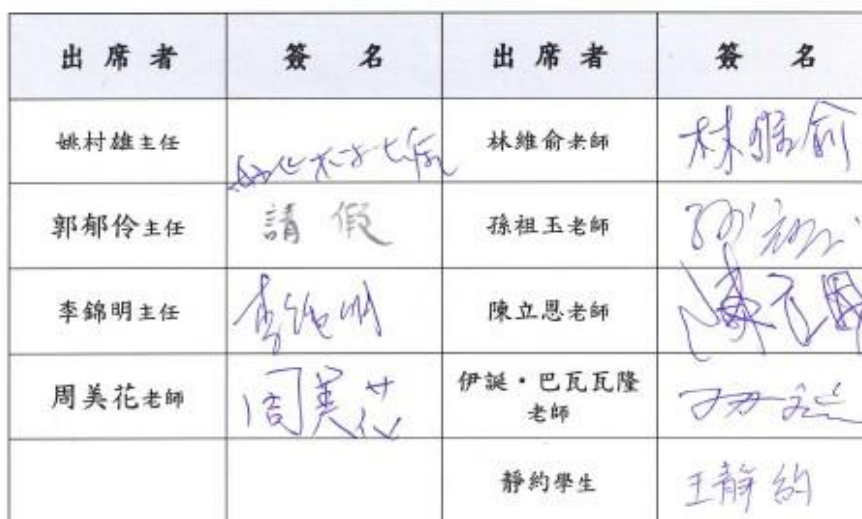 出席者 簽名 出席者 簽名
姚村雄主任 林維俞老師 林維俞
郭郁伶主任 請假 孫祖玉老師
李錦明主任 李錦明 陳立恩老師 陳立恩
周美花老師 周美花 伊誕・巴瓦瓦隆
老師
靜約學生 王靜約